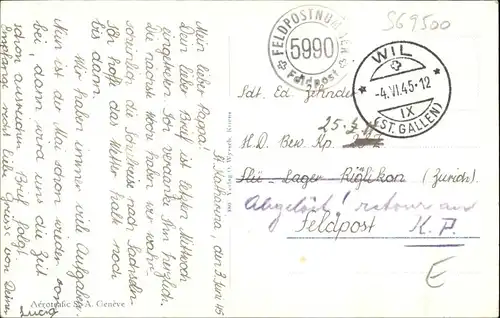 St. Katharina, den 3. Juni 45
Mein lieber Pappa!
Dein lieber Brief ist letzten Mittwoch
eingetroffen. Ich verdanke Ihn herzlich.
Die nächste Woche haben wir wahr-
scheinlich die Schulreise nach Sachseln.
Ich hoffe das Wetter halte noch
bis dann.
Wir haben immer viel Aufgaben.
Nun ist der Mai schon wieder vor-
bei, dann wird uns die Zeit
schon ausreichen. Brief folgt.
Empfange recht liebe Grüsse von Deiner
Lucia
Aérotrafic S. A. Genève
FELDPOSTNUMMER
5990
Feldpost
S69500
WIL
-4.VI.45-12
IX
(ST. GALLEN)
Sdt. Ed Zehnder
25-
H.D. Bew. Kp.
Flü-Lager Rüfikon (Zürich).
Abgelöst! retour an
Feldpost K.P.
E